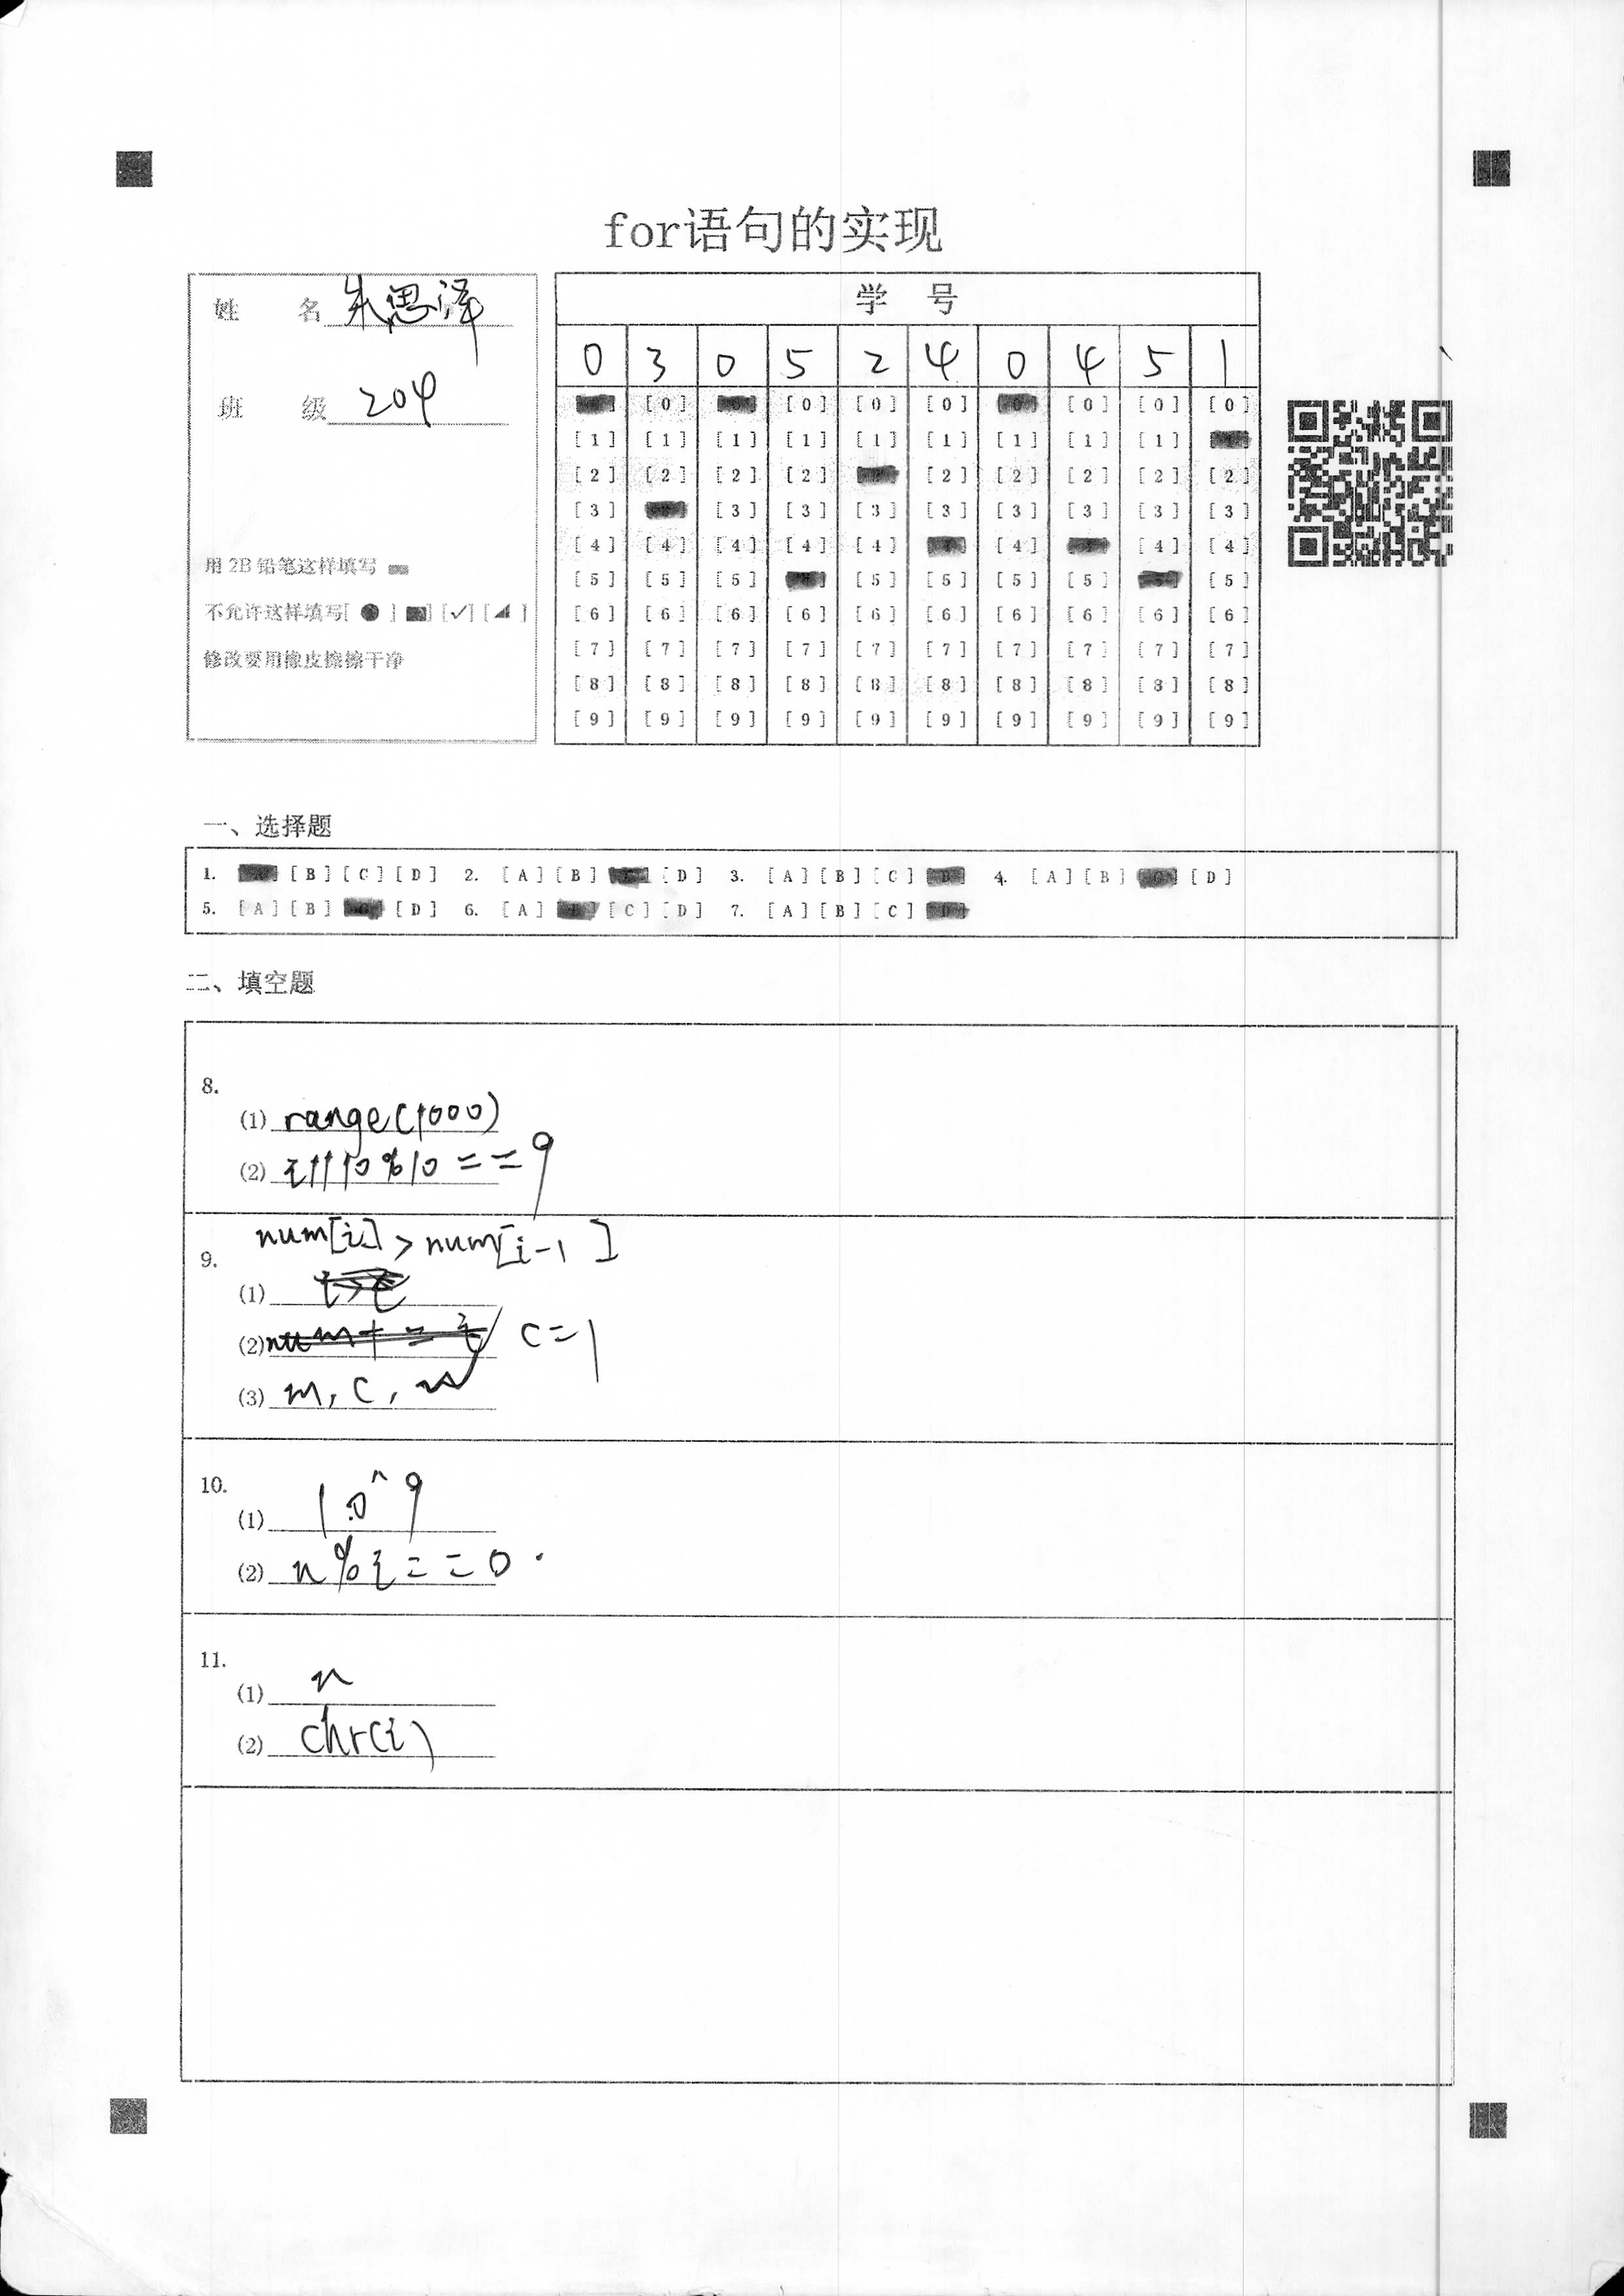 for语句的实现
姓 名 朱思泽
班 级 204
用 2B 铅笔这样填写
不允许这样填写[ ● ] [✓] [ ]
修改要用橡皮擦擦干净
学 号
0 3 0 5 2 4 0 4 5 1
[0] [0] [0] [0] [0] [0] [0]
[1] [1] [1] [1] [1] [1] [1] [1] [1]
[2] [2] [2] [2] [2] [2] [2] [2] [2]
[3] [3] [3] [3] [3] [3] [3] [3] [3]
[4] [4] [4] [4] [4] [4] [4] [4]
[5] [5] [5] [5] [5] [5] [5] [5]
[6] [6] [6] [6] [6] [6] [6] [6] [6] [6]
[7] [7] [7] [7] [7] [7] [7] [7] [7] [7]
[8] [8] [8] [8] [8] [8] [8] [8] [8] [8]
[9] [9] [9] [9] [9] [9] [9] [9] [9] [9]
一、选择题
1. [B] [C] [D] 2. [A] [B] [D] 3. [A] [B] [C] 4. [A] [B] [D]
5. [A] [B] [D] 6. [A] [C] [D] 7. [A] [B] [C]
二、填空题
8.
(1) range(1000)
(2) i//10%10==9
9.
num[i]>num[i-1]
(1)
(2) c=1
(3) m, c,
10.
(1) 10^9
(2) n%i==0
11.
(1) n
(2) chr(i)